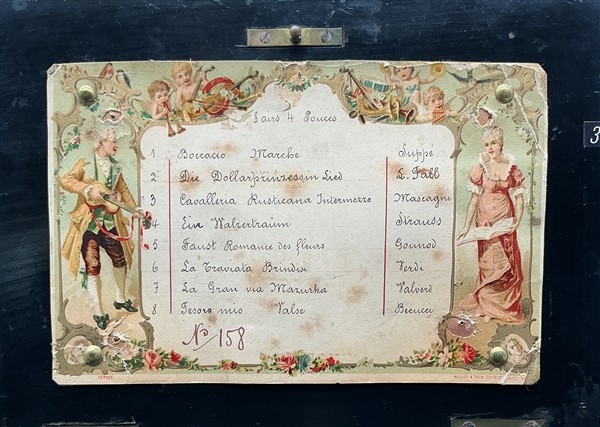 8 airs 4 Pouces
1 Boccacio Marche Suppé
2 Die Dollarprinzessin Lied L. Fall
3 Cavalleria Rusticana Intermezzo Mascagni
4 Ein Walzertraum Strauss
5 Faust Romance des fleurs Gounod
6 La Traviata Brindisi Verdi
7 La Gran via Mazurka Valverd
8 Tesoro mio Valse Becucci
No 158
DÉPOSÉ
3